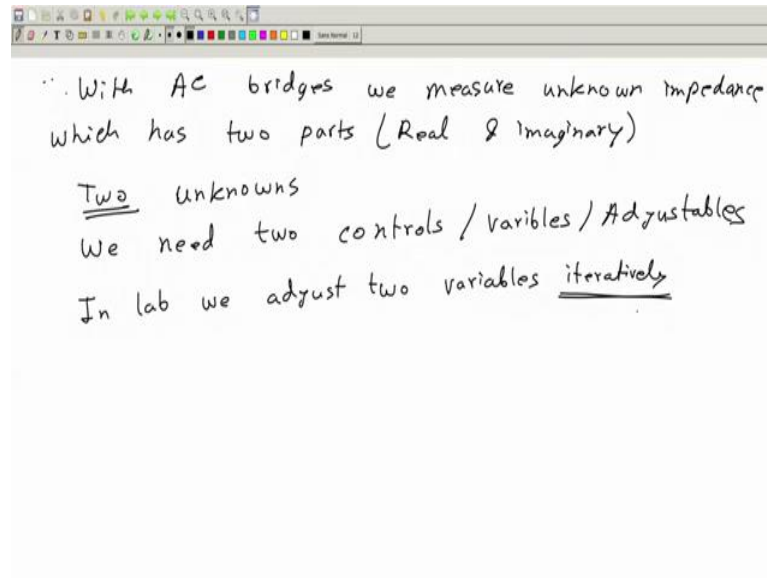 ∵ With AC bridges we measure unknown impedance
which has two parts (Real & imaginary)
Two unknowns
We need two controls / varibles / Adjustables
In lab we adjust two variables iteratively